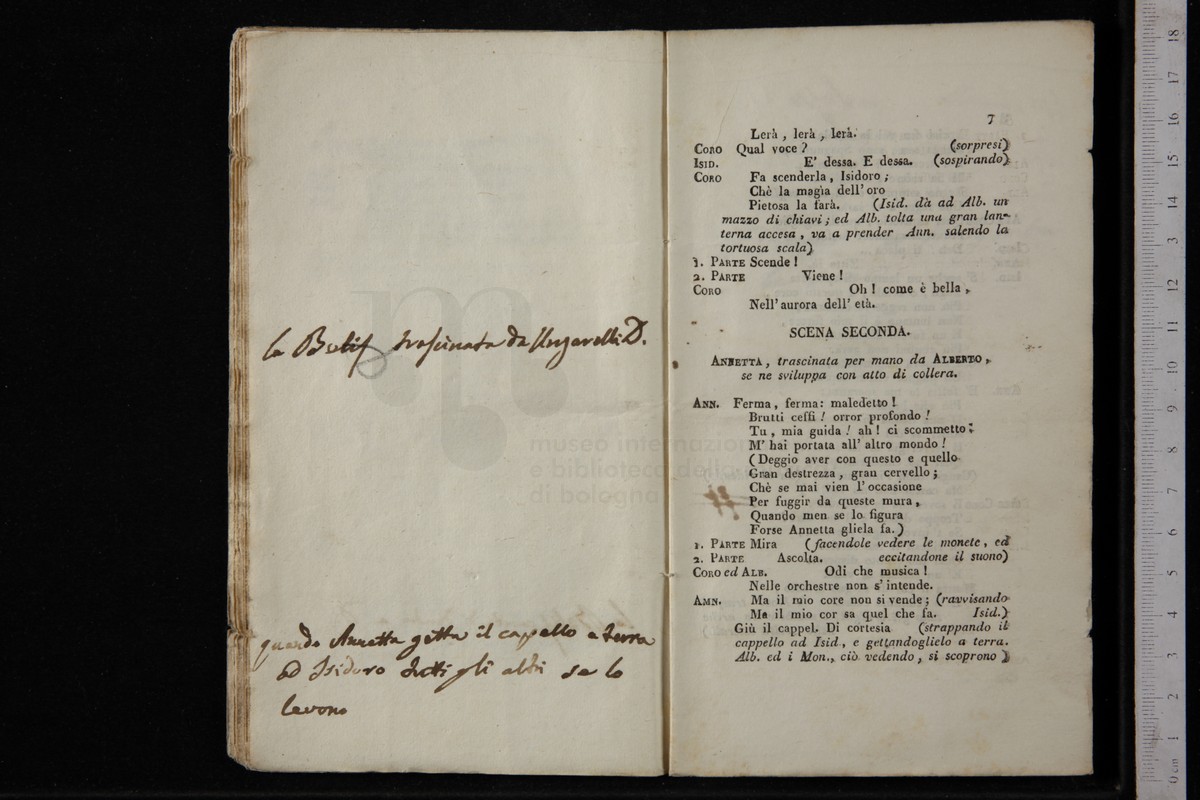 la trascinata da D.
quando Annetta getta il capello a terra
ad Isidoro tutti gli altri se lo
levono
museo internazion
e biblioteca della
di bologna
7
Lerà , lerà , lerà.
CORO Qual voce ? (sorpresi)
ISID. E' dessa. E dessa. (sospirando)
CORO Fa scenderla , Isidoro ;
Chè la magia dell' oro
Pietosa la farà. (Isid. dà ad Alb. un
mazzo di chiavi ; ed Alb. tolta una gran lan-
terna accesa , va a prender Ann. salendo la
tortuosa scala)
1. PARTE Scende !
2. PARTE Viene !
CORO Oh ! come è bella ,
Nell' aurora dell' età.
SCENA SECONDA.
ANNETTA , trascinata per mano da ALBERTO ,
se ne sviluppa con atto di collera.
ANN. Ferma , ferma : maledetto !
Brutti ceffi ! orror profondo !
Tu , mia guida ! ah ! ci scommetto :
M' hai portata all' altro mondo !
( Deggio aver con questo e quello
Gran destrezza , gran cervello ;
Chè se mai vien l' occasione
Per fuggir da queste mura ,
Quando men se lo figura
Forse Annetta gliela fa. )
1. PARTE Mira (facendole vedere le monete , ed
2. PARTE Ascolta. eccitandone il suono)
CORO ed ALB. Odi che musica !
Nelle orchestre non s' intende.
AMN. Ma il mio core non si vende ; (ravvisando
Ma il mio cor sa quel che fa. Isid.)
Giù il cappel. Di cortesia (strappando il
cappello ad Isid , e gettandoglielo a terra.
Alb. ed i Mon., ciò vedendo , si scoprono )
0 cm 1 2 3 4 5 6 7 8 9 10 11 12 13 14 15 16 17 18